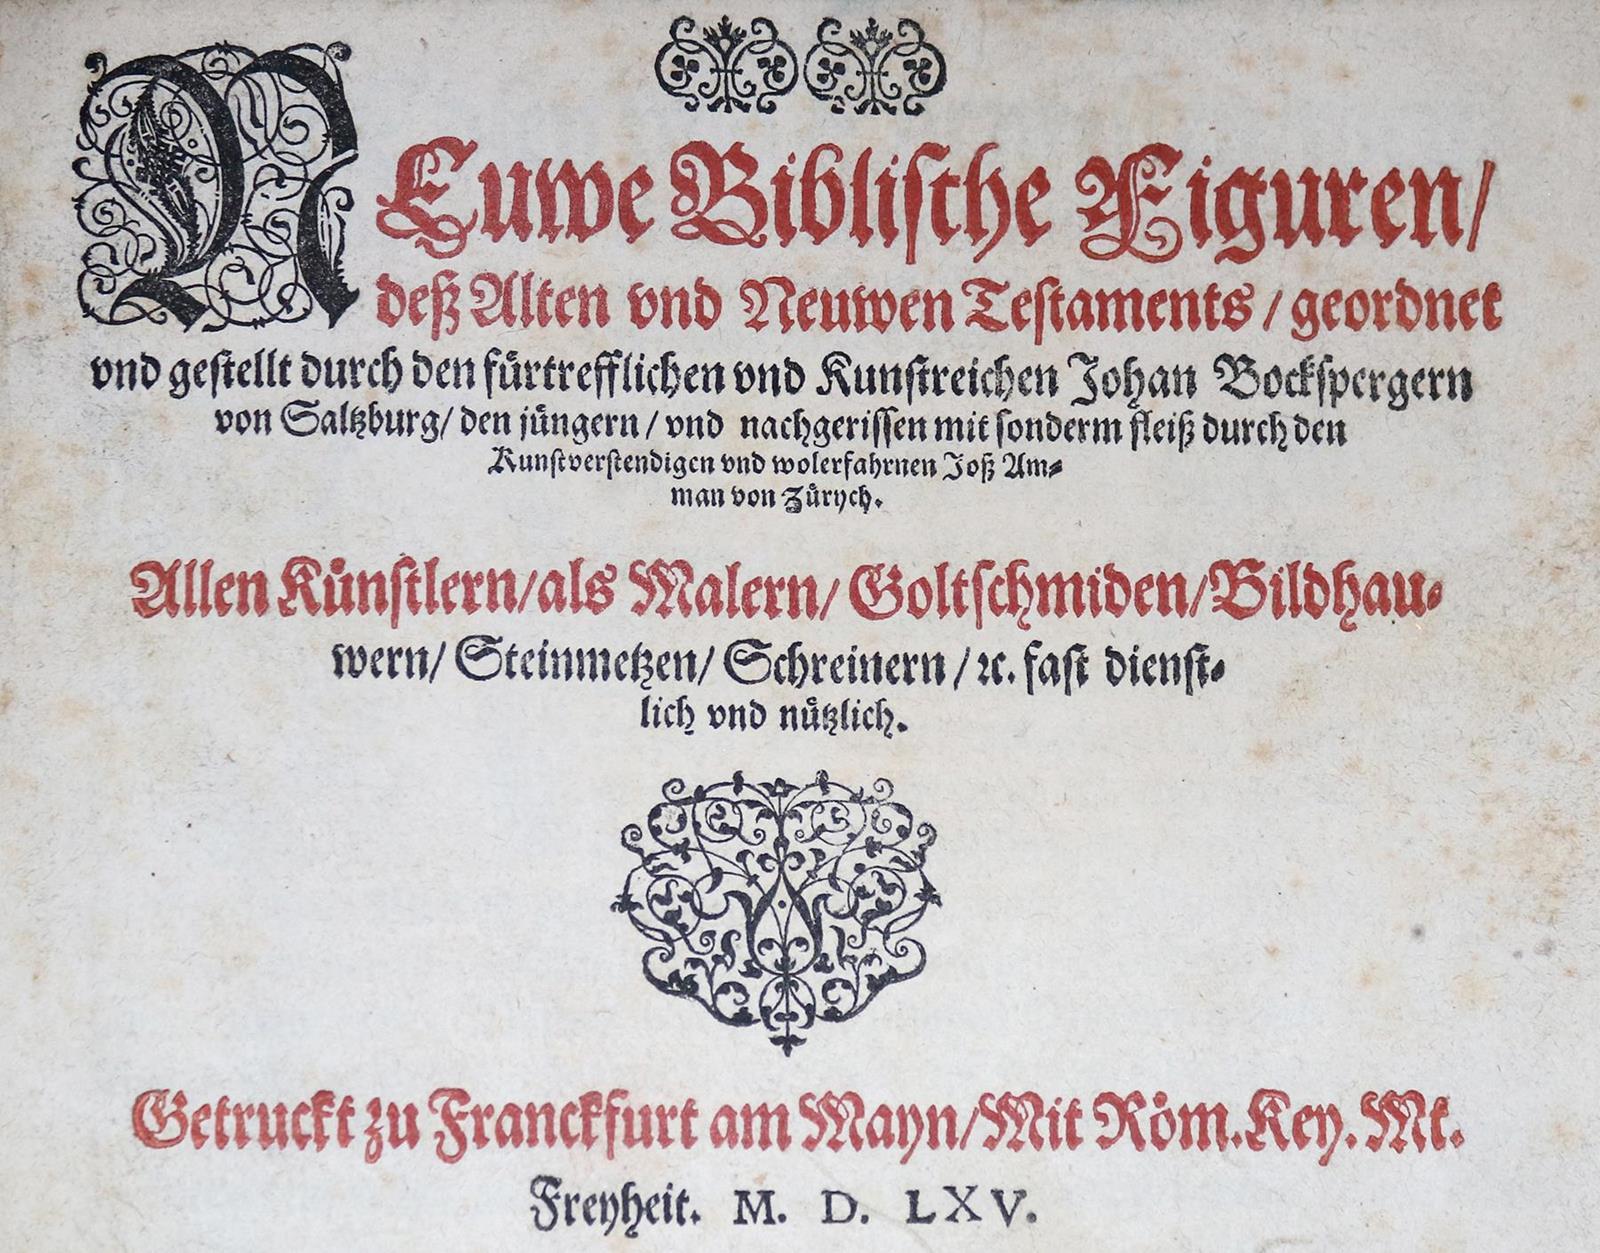 NEuwe Biblische Figuren/
deß Alten vnd Neuwen Testaments/ geordnet
vnd gestellt durch den fürtrefflichen vnd Kunstreichen Johan Bockspergern
von Saltzburg/ den jüngern/ vnd nachgerissen mit sonderm fleiß durch den
Kunstverstendigen vnd wolerfahrnen Joß Am⸗
man von Zürych.
Allen Künstlern/als Malern/ Goltschmiden/Bildhau⸗
wern/ Steinmetzen/ Schreinern/ ꝛc. fast dienst⸗
lich vnd nützlich.
Getruckt zu Franckfurt am Mayn/Mit Röm.Key.Mt.
Freyheit. M. D. LXV.